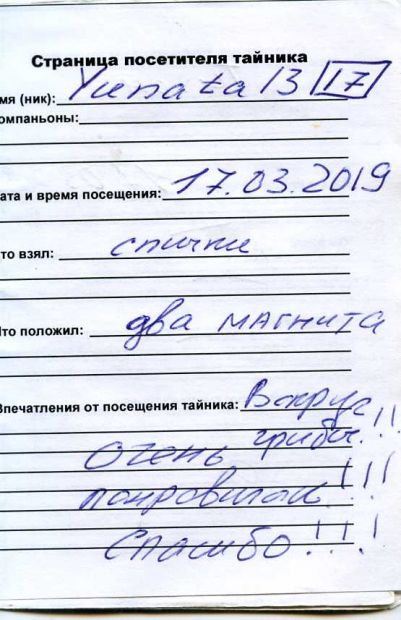 Страница посетителя тайника
мя (ник): Yunata13 17
омпаньоны:
ата и время посещения: 17.03.2019
то взял: спички
Что положил: два магнита
Впечатления от посещения тайника: Вокруг
грибы!!
Очень
понравилась!!!
Спасибо!!!